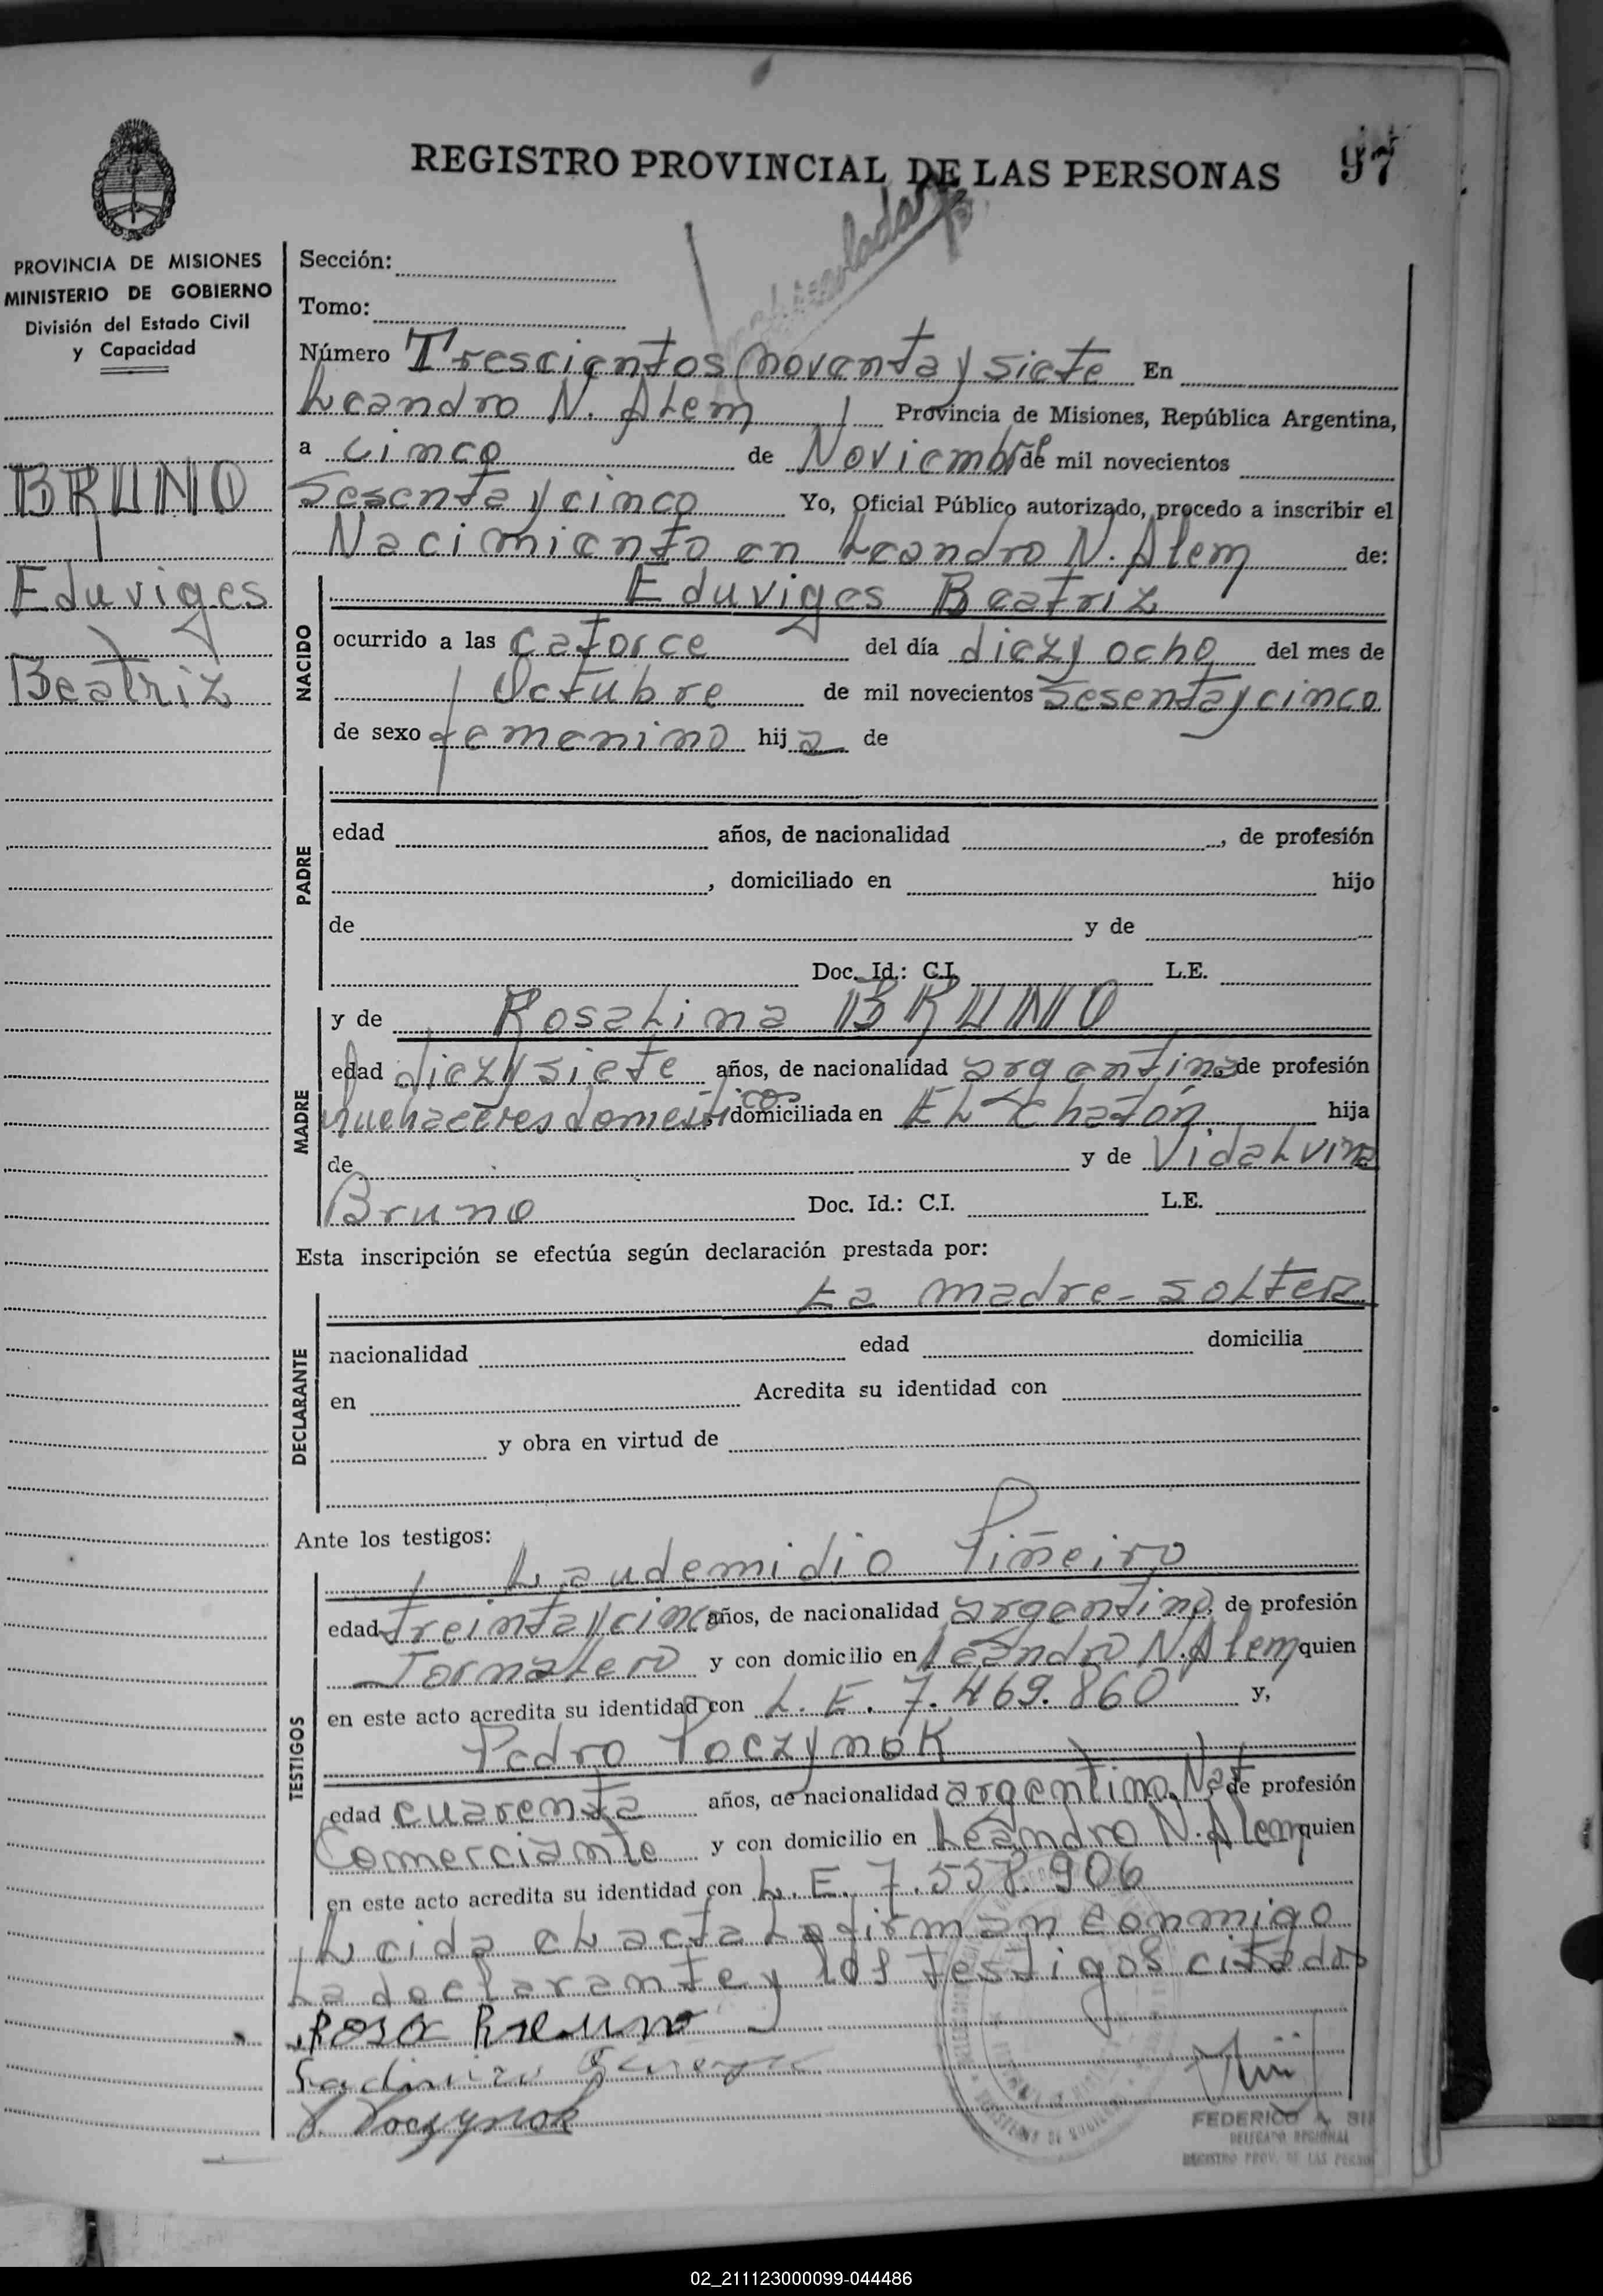 REGISTRO PROVINCIAL DE LAS PERSONAS 97
PROVINCIA DE MISIONES
MINISTERIO DE GOBIERNO
División del Estado Civil
y Capacidad
BRUNO
Eduviges
Beatriz
Sección:
Tomo:
Número Trescientos noventa y siete En
Leandro N. Alem Provincia de Misiones, República Argentina,
a cinco de Noviembre de mil novecientos
Sesenta y cinco Yo, Oficial Público autorizado, procedo a inscribir el
Nacimiento en Leandro N. Alem de:
NACIDO
Eduviges Beatriz
ocurrido a las catorce del día diez y ocho del mes de
Octubre de mil novecientos Sesenta y cinco
de sexo femenino hija de
PADRE
edad años, de nacionalidad , de profesión
, domiciliado en hijo
de y de
Doc. Id.: C.I. L.E.
MADRE
y de Rosalina BRUNO
edad diez y siete años, de nacionalidad argentina de profesión
Quehaceres domesticos, domiciliada en El Chatón hija
de y de Vidalvina
Bruno Doc. Id.: C.I. L.E.
Esta inscripción se efectúa según declaración prestada por:
DECLARANTE
La madre - soltera
nacionalidad edad domicilia
en Acredita su identidad con
y obra en virtud de
Ante los testigos:
TESTIGOS
Laudemidio Piñeiro
edad treinta y cinco años, de nacionalidad argentino, de profesión
Jornalero y con domicilio en Leandro N. Alem quien
en este acto acredita su identidad con L. E. 7.469.860 y,
Pedro Poczynok
edad cuarenta años, de nacionalidad argentino Nat de profesión
Comerciante y con domicilio en Leandro N. Alem quien
en este acto acredita su identidad con L. E. 7.558.906
Leida el acta la firman conmigo
La declarante y los testigos citados
Rosa Bruno
P. Poczynok
FEDERICO A.
DELEGADO REGIONAL
REGISTRO PROV. DE LAS
02_211123000099-044486